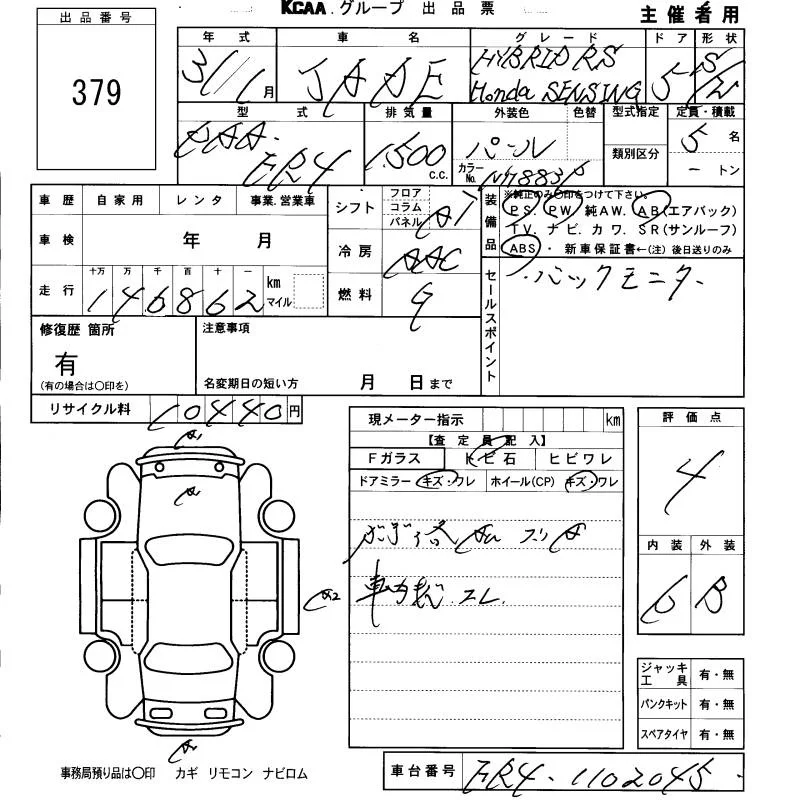 KCAA グループ 出品票
主催者用
出品番号
379
年式 車名 グレード ドア 形状
31/1月 JADE HYBRID RS Honda SENSING 5 S/W
型式 排気量 外装色 色替 型式指定 定員・積載
DAA- FR4 1,500 C.C. パール カラーNo. NH883P 類別区分 5名 ートン
車歴 自家用 レンタ 事業.営業車
シフト フロア コラム パネル AT
車検 年 月
冷房 AAC
走行 十万 万 千 百 十 一 km マイル
146862
燃料 G
装備品 ※純正のみ○印をつけて下さい。
PS. PW. 純AW. AB(エアバック)
TV. ナビ. カワ. SR(サンルーフ)
ABS・ 新車保証書←(注) 後日送りのみ
セールスポイント
・バックモニター
修復歴 箇所
有
(有の場合は○印を)
注意事項
名変期日の短い方 月 日まで
リサイクル料 10440円
現メーター指示 km
【査定員記入】
Fガラス トビ石 ヒビワレ
ドアミラー キズ・ワレ ホイール(CP) キズ・ワレ
評価点
4
内装 外装
6 B
A1
A
A2
A
ジャッキ工具 有・無
パンクキット 有・無
スペアタイヤ 有・無
事務局預り品は○印 カギ リモコン ナビロム
車台番号 FR4-1102045